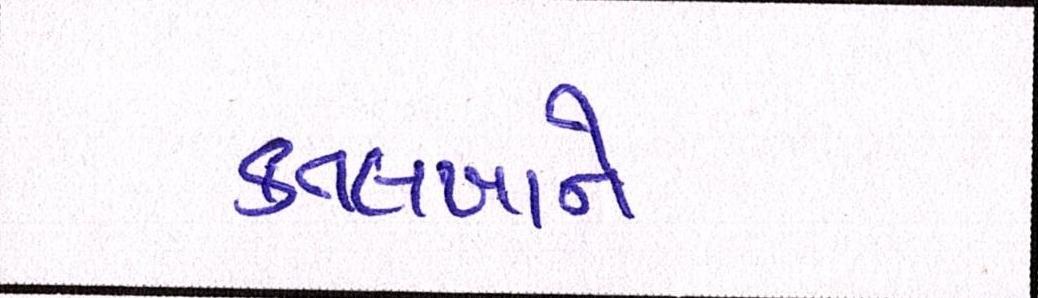 કતલખાને